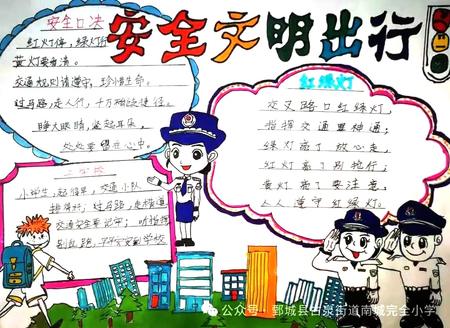 安全文明出行
安全口决
红灯停,绿灯行
黄灯要看清。
交通规则请遵守,珍惜生命。
过马路,走人行,千万别走捷径。
睁大眼睛,竖起耳朵,
处处要留在心中。
上学路
小学生,起得早,交通小队
排得好;过马路,走横道
交通安全要记牢;听指挥
别乱跑,平平安安到学校
红绿灯
交叉路口红绿灯,
指挥交通显神通;
绿灯亮了放心走,
红灯亮了别抢行;
黄灯亮了要注意,
人人遵守红绿灯。
公众号·鄄城县古泉街道南城完全小学